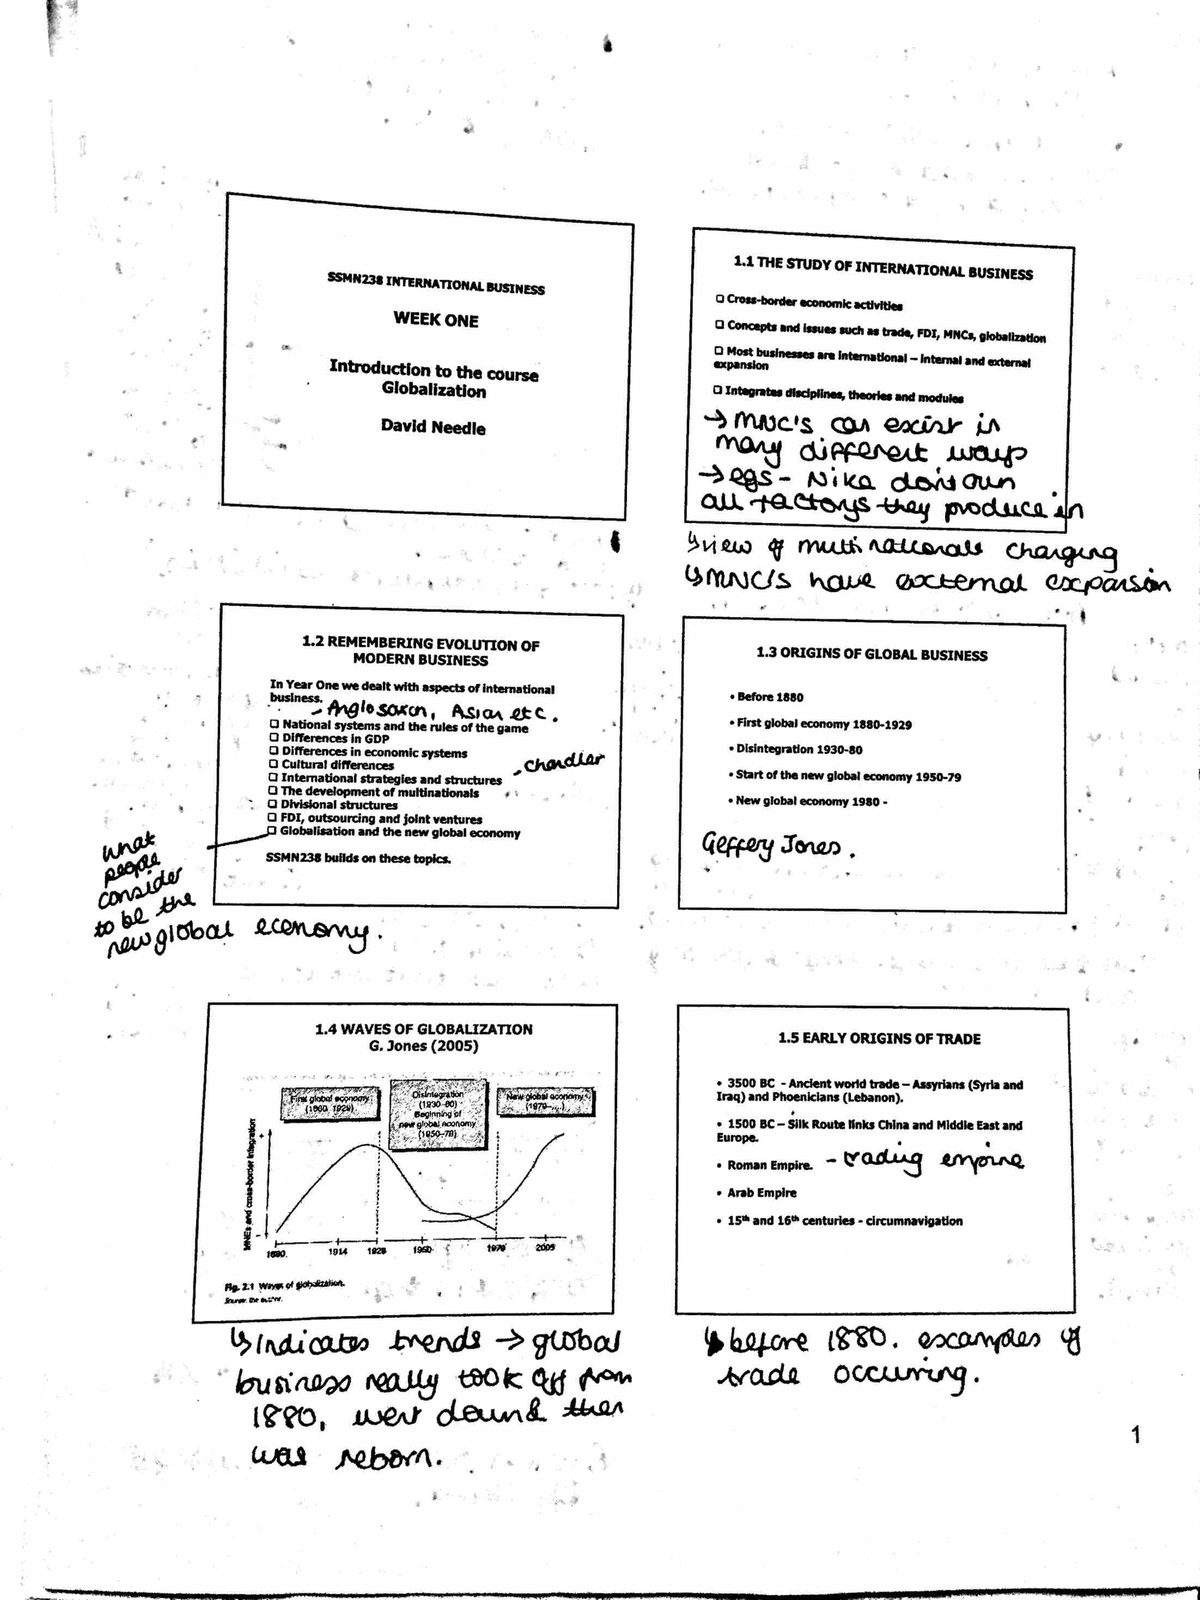 SSMN238 INTERNATIONAL BUSINESS
WEEK ONE
Introduction to the course
Globalization
David Needle
1.1 THE STUDY OF INTERNATIONAL BUSINESS
❑ Cross-border economic activities
❑ Concepts and issues such as trade, FDI, MNCs, globalization
❑ Most businesses are international – internal and external
expansion
❑ Integrates disciplines, theories and modules
→ MNC's can exist in
many different ways
→ egs - Nike don't own
all factorys they produce in
↳ view of multinationals changing
↳ MNC's have external expansion
1.2 REMEMBERING EVOLUTION OF
MODERN BUSINESS
In Year One we dealt with aspects of international
business.
- Anglosaxon, Asian etc.
❑ National systems and the rules of the game
❑ Differences in GDP
❑ Differences in economic systems
❑ Cultural differences
❑ International strategies and structures - Chandler
❑ The development of multinationals
❑ Divisional structures
❑ FDI, outsourcing and joint ventures
❑ Globalisation and the new global economy
SSMN238 builds on these topics.
what
people
consider
to be the
new global economy.
1.3 ORIGINS OF GLOBAL BUSINESS
• Before 1880
• First global economy 1880-1929
• Disintegration 1930-80
• Start of the new global economy 1950-79
• New global economy 1980 -
Geffery Jones.
1.4 WAVES OF GLOBALIZATION
G. Jones (2005)
First global economy
(1880-1929)
Disintegration
(1930-80)
Beginning of
new global economy
(1950-79)
New global economy
(1979-...)
MNEs and cross-border integration
+
-
1880 1914 1929 1950 1979 2005
Fig. 2.1 Waves of globalization.
Source: the author.
↳ Indicates trends → global
business really took off from
1880, went down & then
was reborn.
1.5 EARLY ORIGINS OF TRADE
• 3500 BC - Ancient world trade – Assyrians (Syria and
Iraq) and Phoenicians (Lebanon).
• 1500 BC – Silk Route links China and Middle East and
Europe.
• Roman Empire. - trading empire
• Arab Empire
• 15th and 16th centuries - circumnavigation
↳ before 1880. examples of
trade occuring.
1